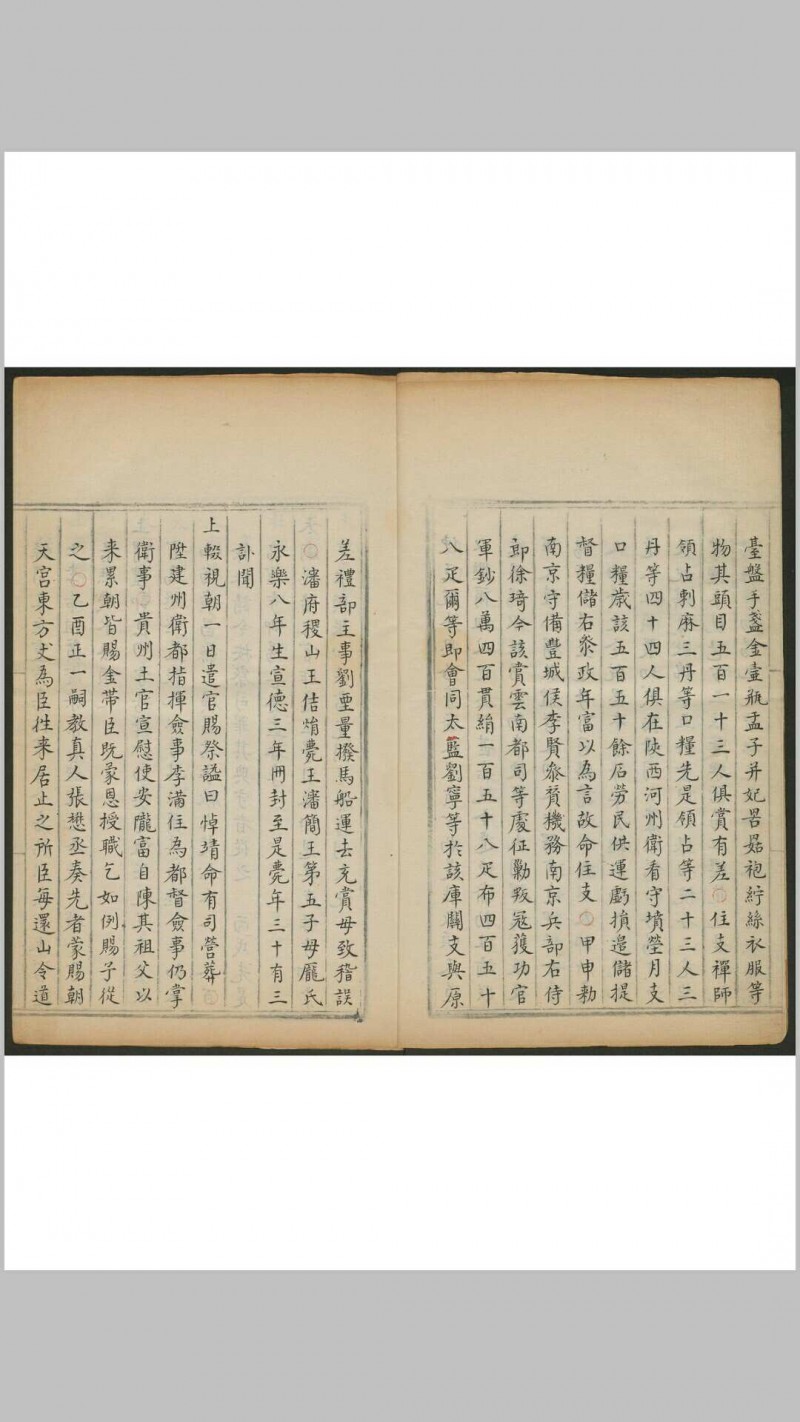 臺盤手盞金壺瓶盂子并妃罟姑袍紵絲衣服等
物其頭目五百一十三人俱賞有差○住支禪師
領占剌麻三丹等口糧先是領占等二十三人三
丹等四十四人俱在陝西河州衛看守墳塋月支
口糧歲該五百五十餘石勞民供運虧損邊儲提
督糧儲右叅政年富以為言故命住支○甲申勅
南京守備豐城侯李賢叅贊機務南京兵部右侍
郎徐琦今該賞雲南都司等處征勦叛寇獲功官
軍鈔八萬四百貫絹一百五十八疋布四百五十
八疋爾等即會同太藍劉寧等於該庫關支與原
差禮部主事劉垔量撥馬船運去充賞毋致稽誤
○瀋府稷山王佶焇薨王瀋簡王第五子母龐氏
永樂八年生宣德三年冊封至是薨年三十有三
訃聞
上輟視朝一日遣官賜祭謚曰悼靖命有司營葬○
陞建州衛都指揮僉事李滿住為都督僉事仍掌
衛事○貴州土官宣慰使安隴富自陳其祖父以
来累朝皆賜金帶臣既蒙恩授職乞如例賜子從
之○乙酉正一嗣教真人張懋丞奏先者蒙賜朝
天宫東方丈為臣徃来居止之所臣每還山令道